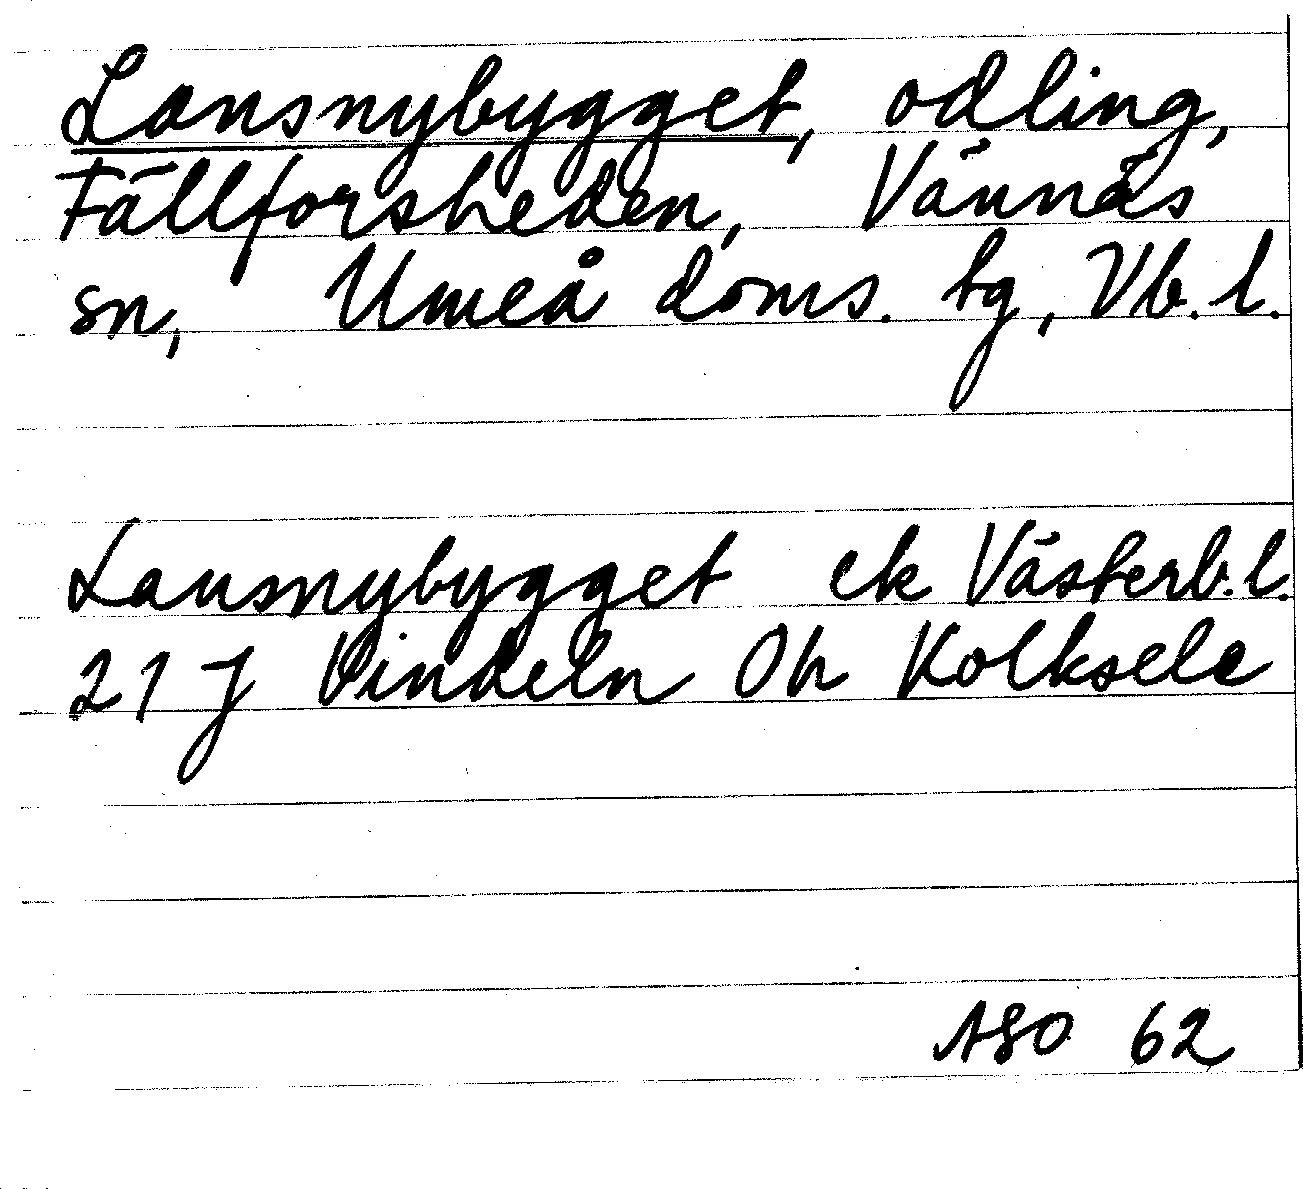 Lansnybygget, odling,
Fällforsheden, Vännäs
sn, Umeå doms. tg, Vb. l.
Lansnybygget ek Västerb. l.
21 J Vindeln Oh Kolksele
ASO 62